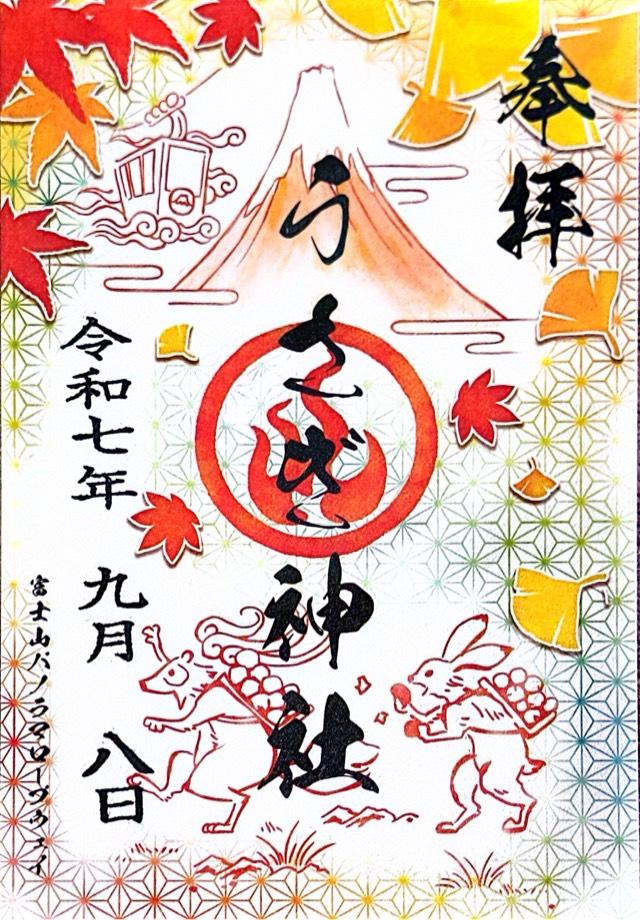 奉拝
うさぎ神社
令和七年 九月 八日
富士山パノラマロープウェイ